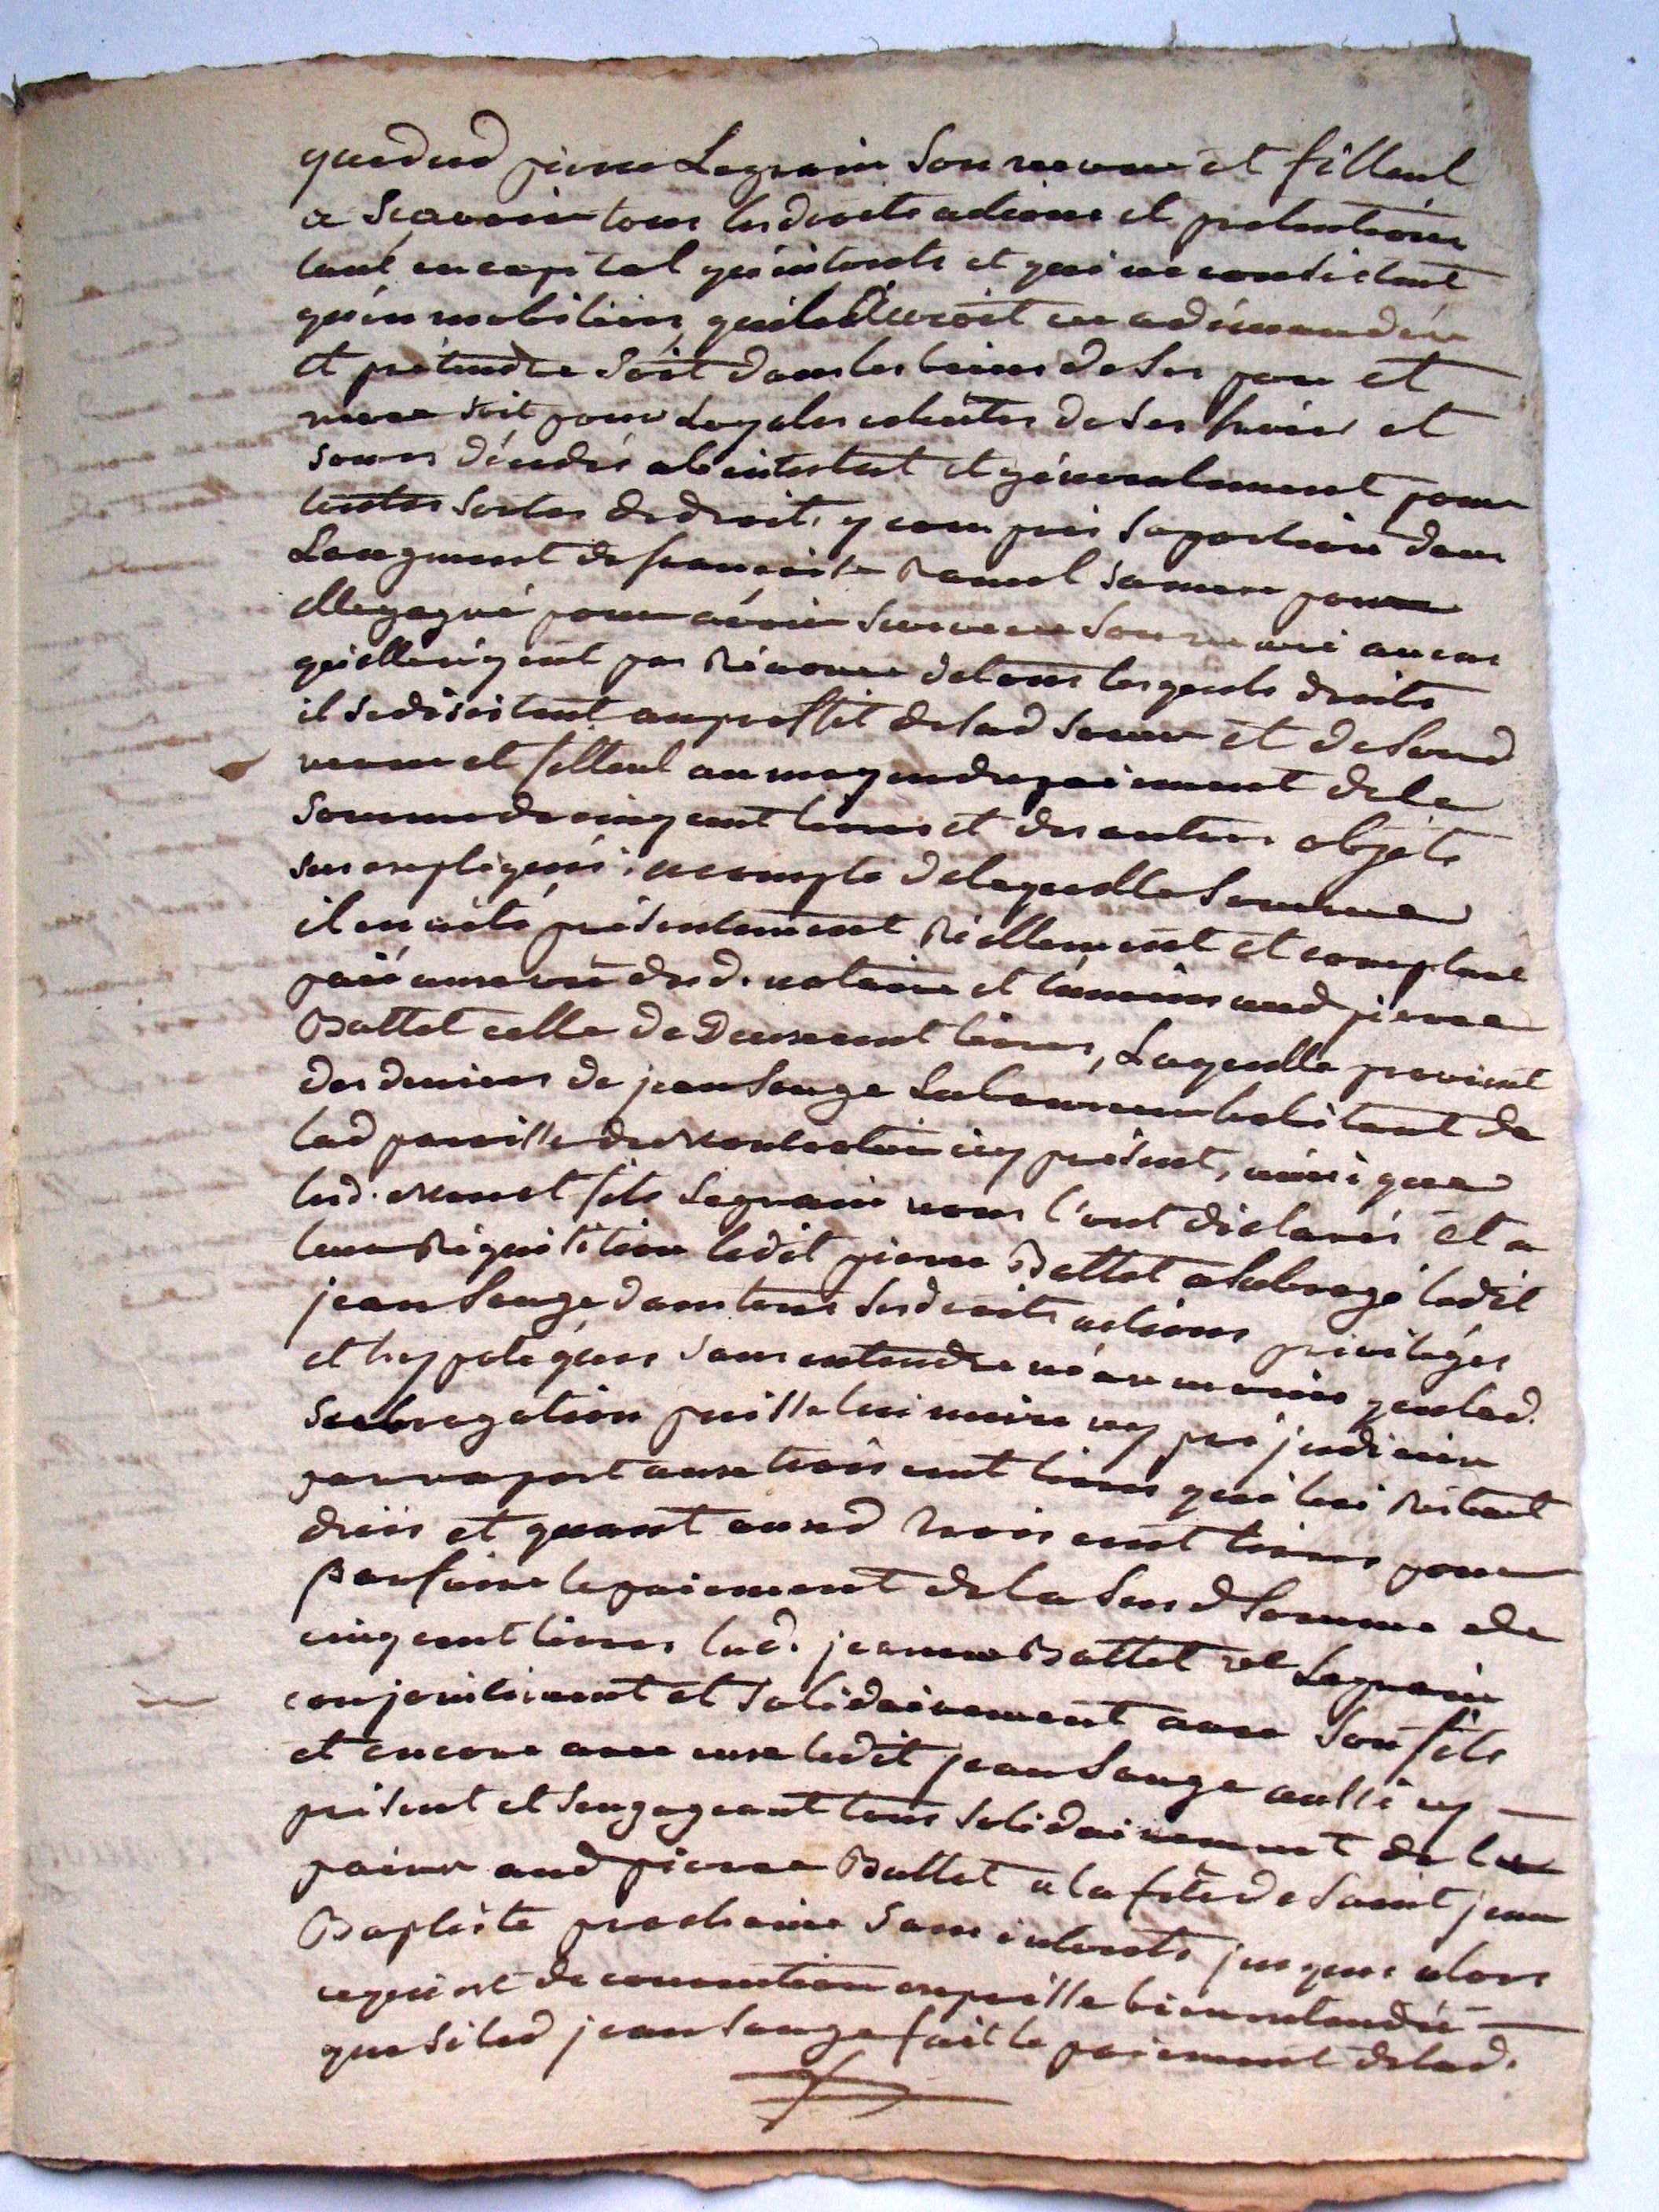 quedud pierre Legrain son neveu et filleul
a Scavoir tous les droits actions et pretentions
tant en capital qu'interets et qui ne consistent
qu'en mobiliers, quil auroit en a démandér
et prétendre soit dans les biens de ses pere et
mere soit pour Loyales echeutes de ses freres et
soeurs décédés ab intestat et génerallement pour
touttes sortes de droits, y compris sa portion dans
Laugment de francoise Ramel sa mere pour
elle gagné pour avoir survecu son mari au cas
qu'elle n'y eut pas Rénoncé de tous lesquels droits
il se désistent au proffit de lad soeur et de soud
neveu et filleul au moyen du paiement de la
somme de cinq cent livres et des autres objets
sus expliqués; acompte de laquelle somme
il en a eté présentement Réellement et comptant
paié aux vüe dud. notaire et témoins aud pierre
Battet celle de Deux cent livres, Laquelle provient
des deniers de jean Sauge Laboureur habitant de
lad paroisse de icy présent, ainsi que
lesd. et fils Legrain nous l'ont déclarés et a
leur Réquisition ledit pierre Battet a Subrogé ledit
jean Sauge dans tous ses droits actions priviléges
et hypotéques sans entendre néanmoins que lad.
Subrogation puisse lui nuire ny préjudicier
par raport aux trois cent livres qui lui Restent
düs et quant auxd trois cent livres pour
Parfaire le paiement de la susd somme de
cinq cent livres lad. jeanne Battet ve Legrain
conjointement et solidairement avec son fils
et encore avec eux ledit jean Sauge aussi icy
présent et s'engageant tous solidairement de les
paier aud pierre Battet a la fète de Saint jean
Baptiste prochaine sans interets jusques alors
ce qui est de convention expresse bien entendu
que si led jean Sauge fait le paiement de lad.